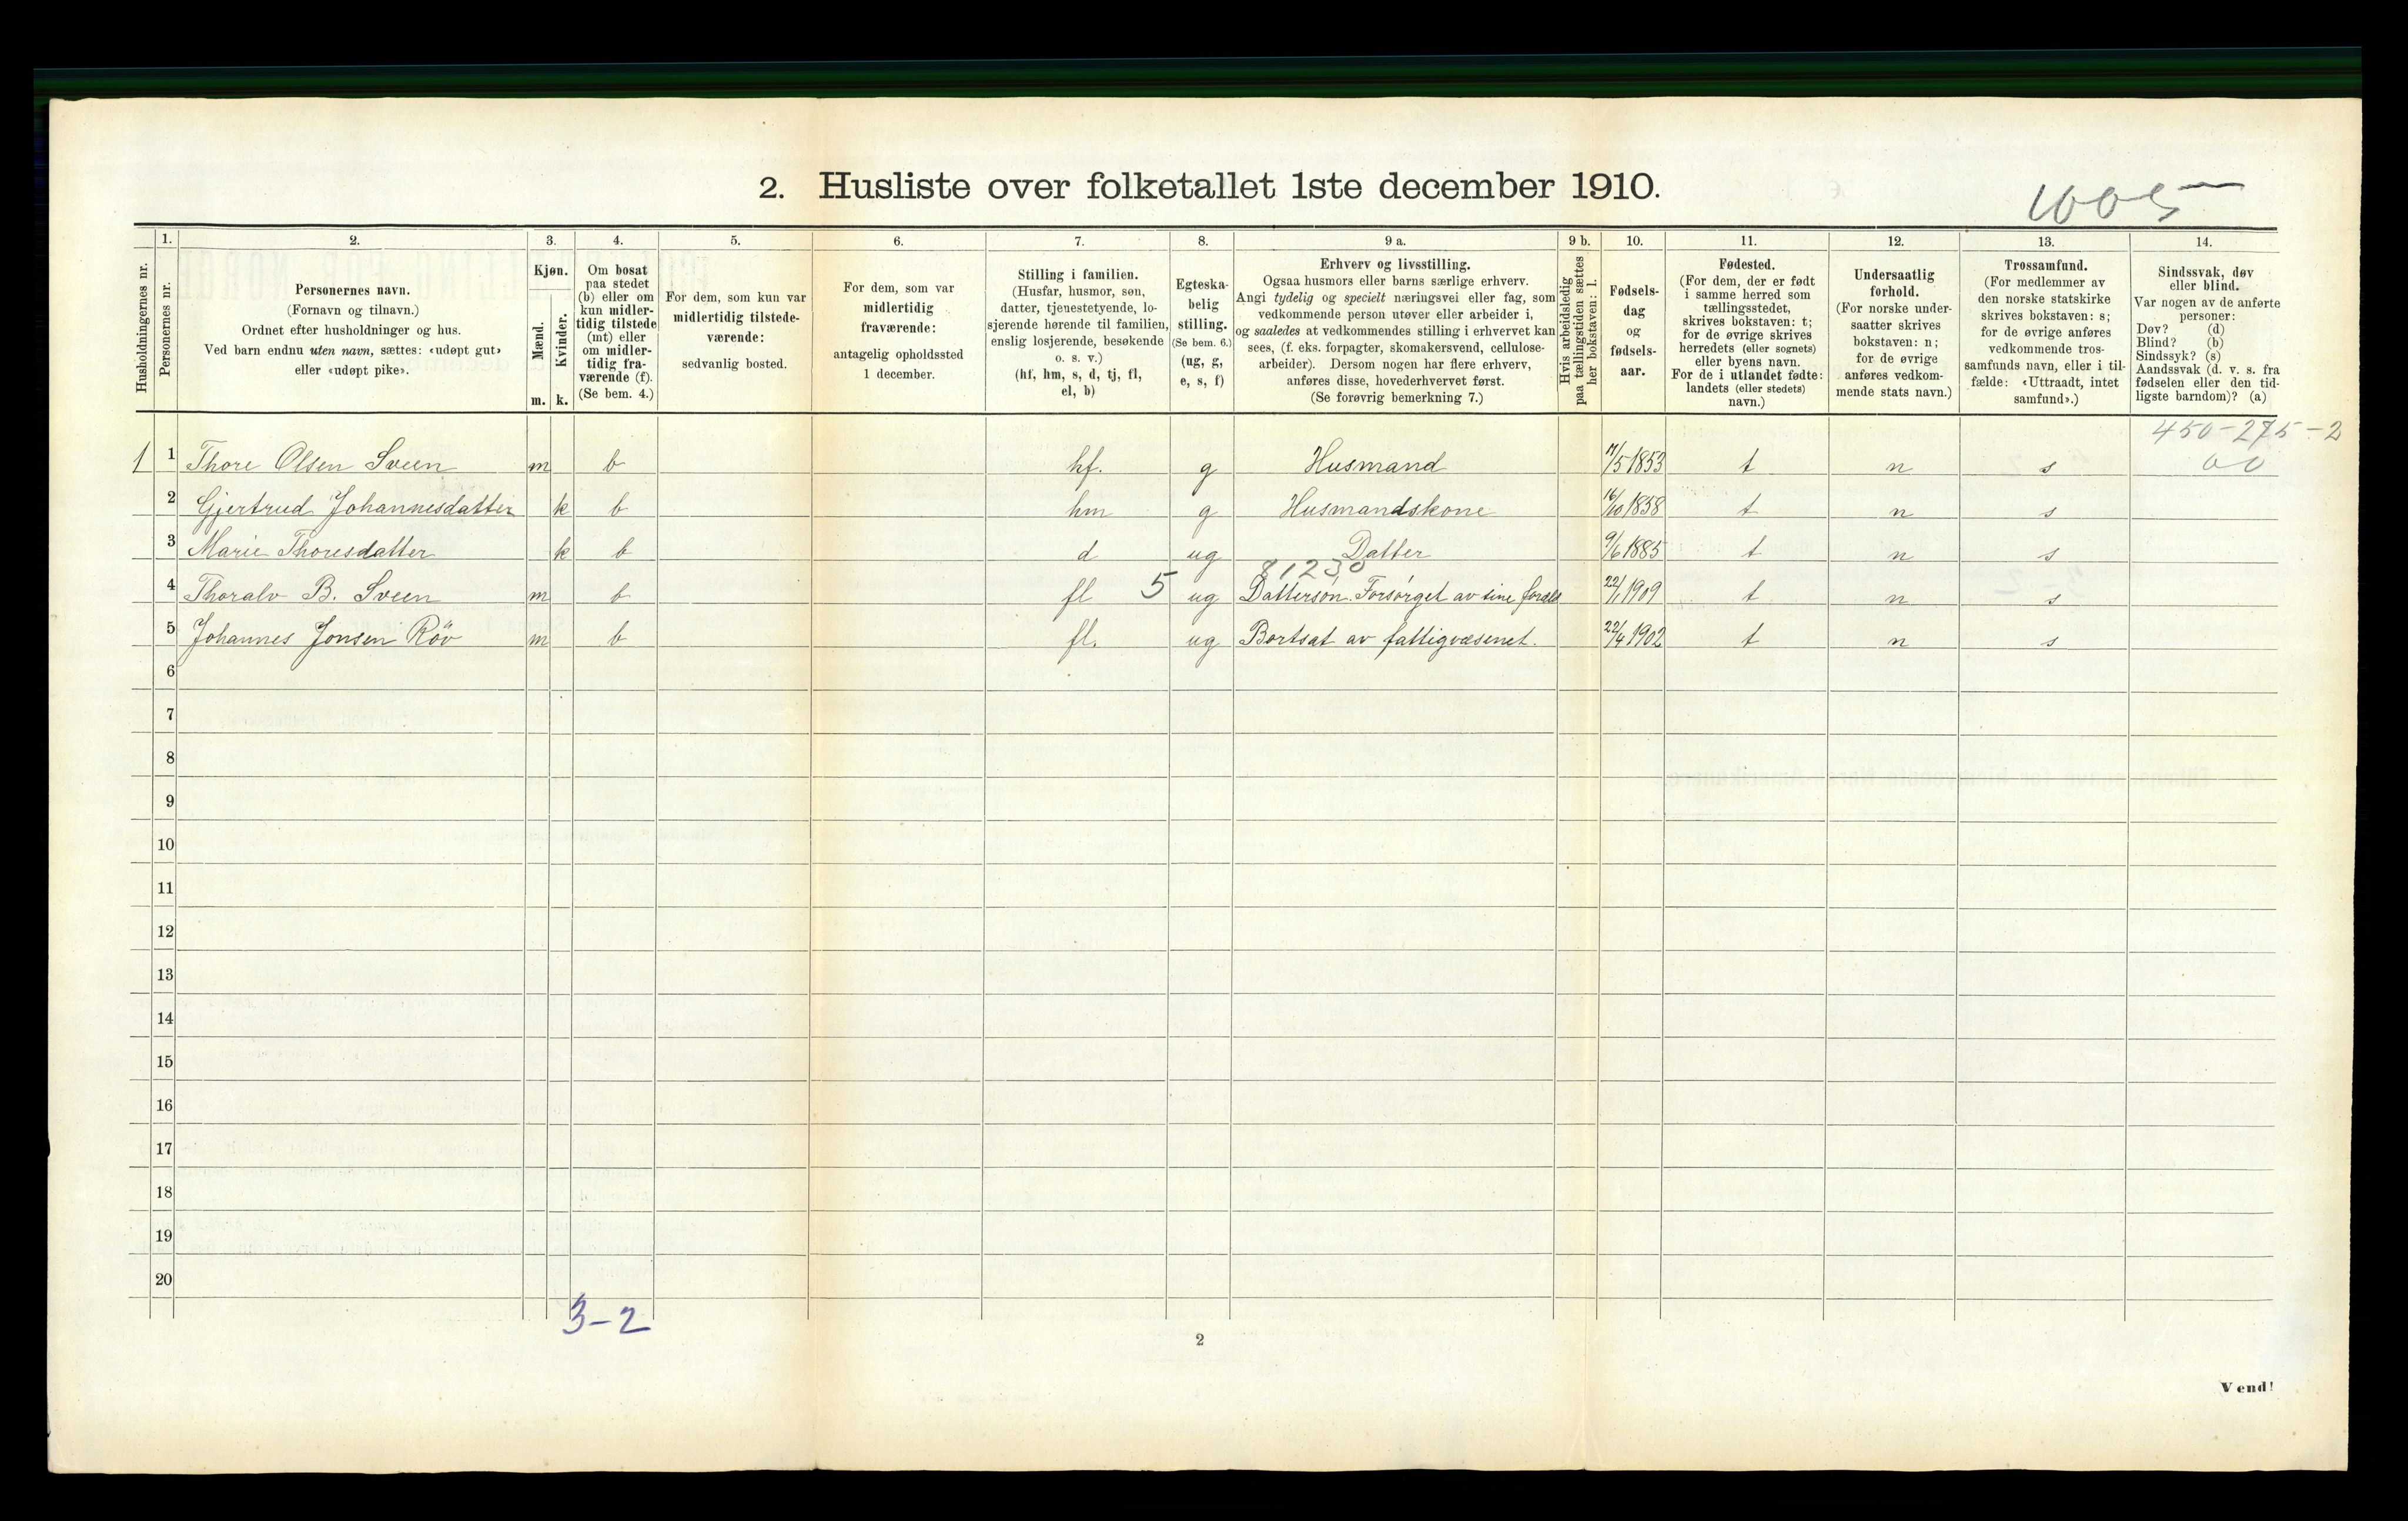 2. Husliste over folketallet 1ste december 1910.
1005
Husholdningernes nr.
1.
Personernes nr.
2.
Personernes navn.
(Fornavn og tilnavn.)
Ordnet efter husholdninger og hus.
Ved barn endnu uten navn, sættes: «udøpt gut»
eller «udøpt pike».
3.
Kjøn.
Mænd.
Kvinder.
m. k.
4.
Om bosat
paa stedet
(b) eller om
kun midler-
tidig tilstede
(mt) eller
om midler-
tidig fra-
værende (f).
(Se bem. 4.)
5.
For dem, som kun var
midlertidig tilstede-
værende:
sedvanlig bosted.
6.
For dem, som var
midlertidig
fraværende:
antagelig opholdssted
1 december.
7.
Stilling i familien.
(Husfar, husmor, søn,
datter, tjenestetyende, lo-
sjerende hørende til familien,
enslig losjerende, besøkende
o. s. v.)
(hf, hm, s, d, tj, fl,
el, b)
8.
Egteska-
belig
stilling.
(Se bem. 6.)
(ug, g,
e, s, f)
9 a.
Erhverv og livsstilling.
Ogsaa husmors eller barns særlige erhverv.
Angi tydelig og specielt næringsvei eller fag, som
vedkommende person utøver eller arbeider i,
og saaledes at vedkommendes stilling i erhvervet kan
sees, (f. eks. forpagter, skomakersvend, cellulose-
arbeider). Dersom nogen har flere erhverv,
anføres disse, hovederhvervet først.
(Se forøvrig bemerkning 7.)
9 b.
Hvis arbeidsledig
paa tællingstiden sættes
her bokstaven: l.
10.
Fødsels-
dag
og
fødsels-
aar.
11.
Fødested.
(For dem, der er født
i samme herred som
tællingsstedet,
skrives bokstaven: t;
for de øvrige skrives
herredets (eller sognets)
eller byens navn.
For de i utlandet fødte:
landets (eller stedets)
navn.)
12.
Undersaatlig
forhold.
(For norske under-
saatter skrives
bokstaven: n;
for de øvrige
anføres vedkom-
mende stats navn.)
13.
Trossamfund.
(For medlemmer av
den norske statskirke
skrives bokstaven: s;
for de øvrige anføres
vedkommende tros-
samfunds navn, eller i til-
fælde: «Uttraadt, intet
samfund».)
14.
Sindssvak, døv
eller blind.
Var nogen av de anførte
personer:
Døv? (d)
Blind? (b)
Sindssyk? (s)
Aandssvak (d. v. s. fra
fødselen eller den tid-
ligste barndom)? (a)
450-275-2
1 1 Thore Olsen Sveen m b hf. g Husmand /5 1853 t n s 00
2 Gjertrud Johannesdatter k b hm g Husmandskone 16/10 1858 t n s
3 Marie Thoresdatter k b d ug Datter 9/6 1885 t n s
81230
4 Thoralv B. Sveen m b fl 5 ug Dattersøn. Forsørget av sine 22/1 1909 t n s
5 Johannes Jonsen Röv m b fl. ug Bortsat av fattigvæsenet. 22/4 1902 t n s
6
7
8
9
10
11
12
13
14
15
16
17
18
19
20
3-2
2
Vend!